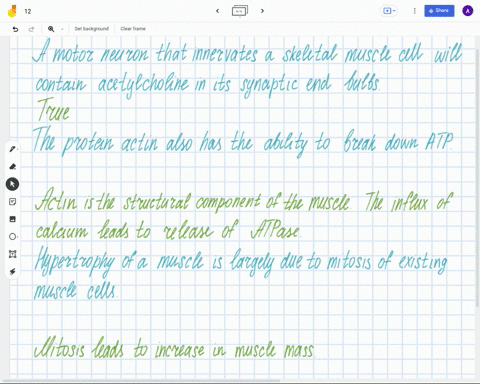 12
Share
A
Set background
Clear frame
A motor neuron that innervates a skeletal muscle cell will
contain acetylcholine in its synaptic end bulbs.
True
The protein actin also has the ability to break down ATP.
Actin is the structural component of the muscle The influx of
calcium leads to release of ATPase.
Hypertrophy of a muscle is largely due to mitosis of existing
muscle cells.
Mitosis leads to increase in muscle mass